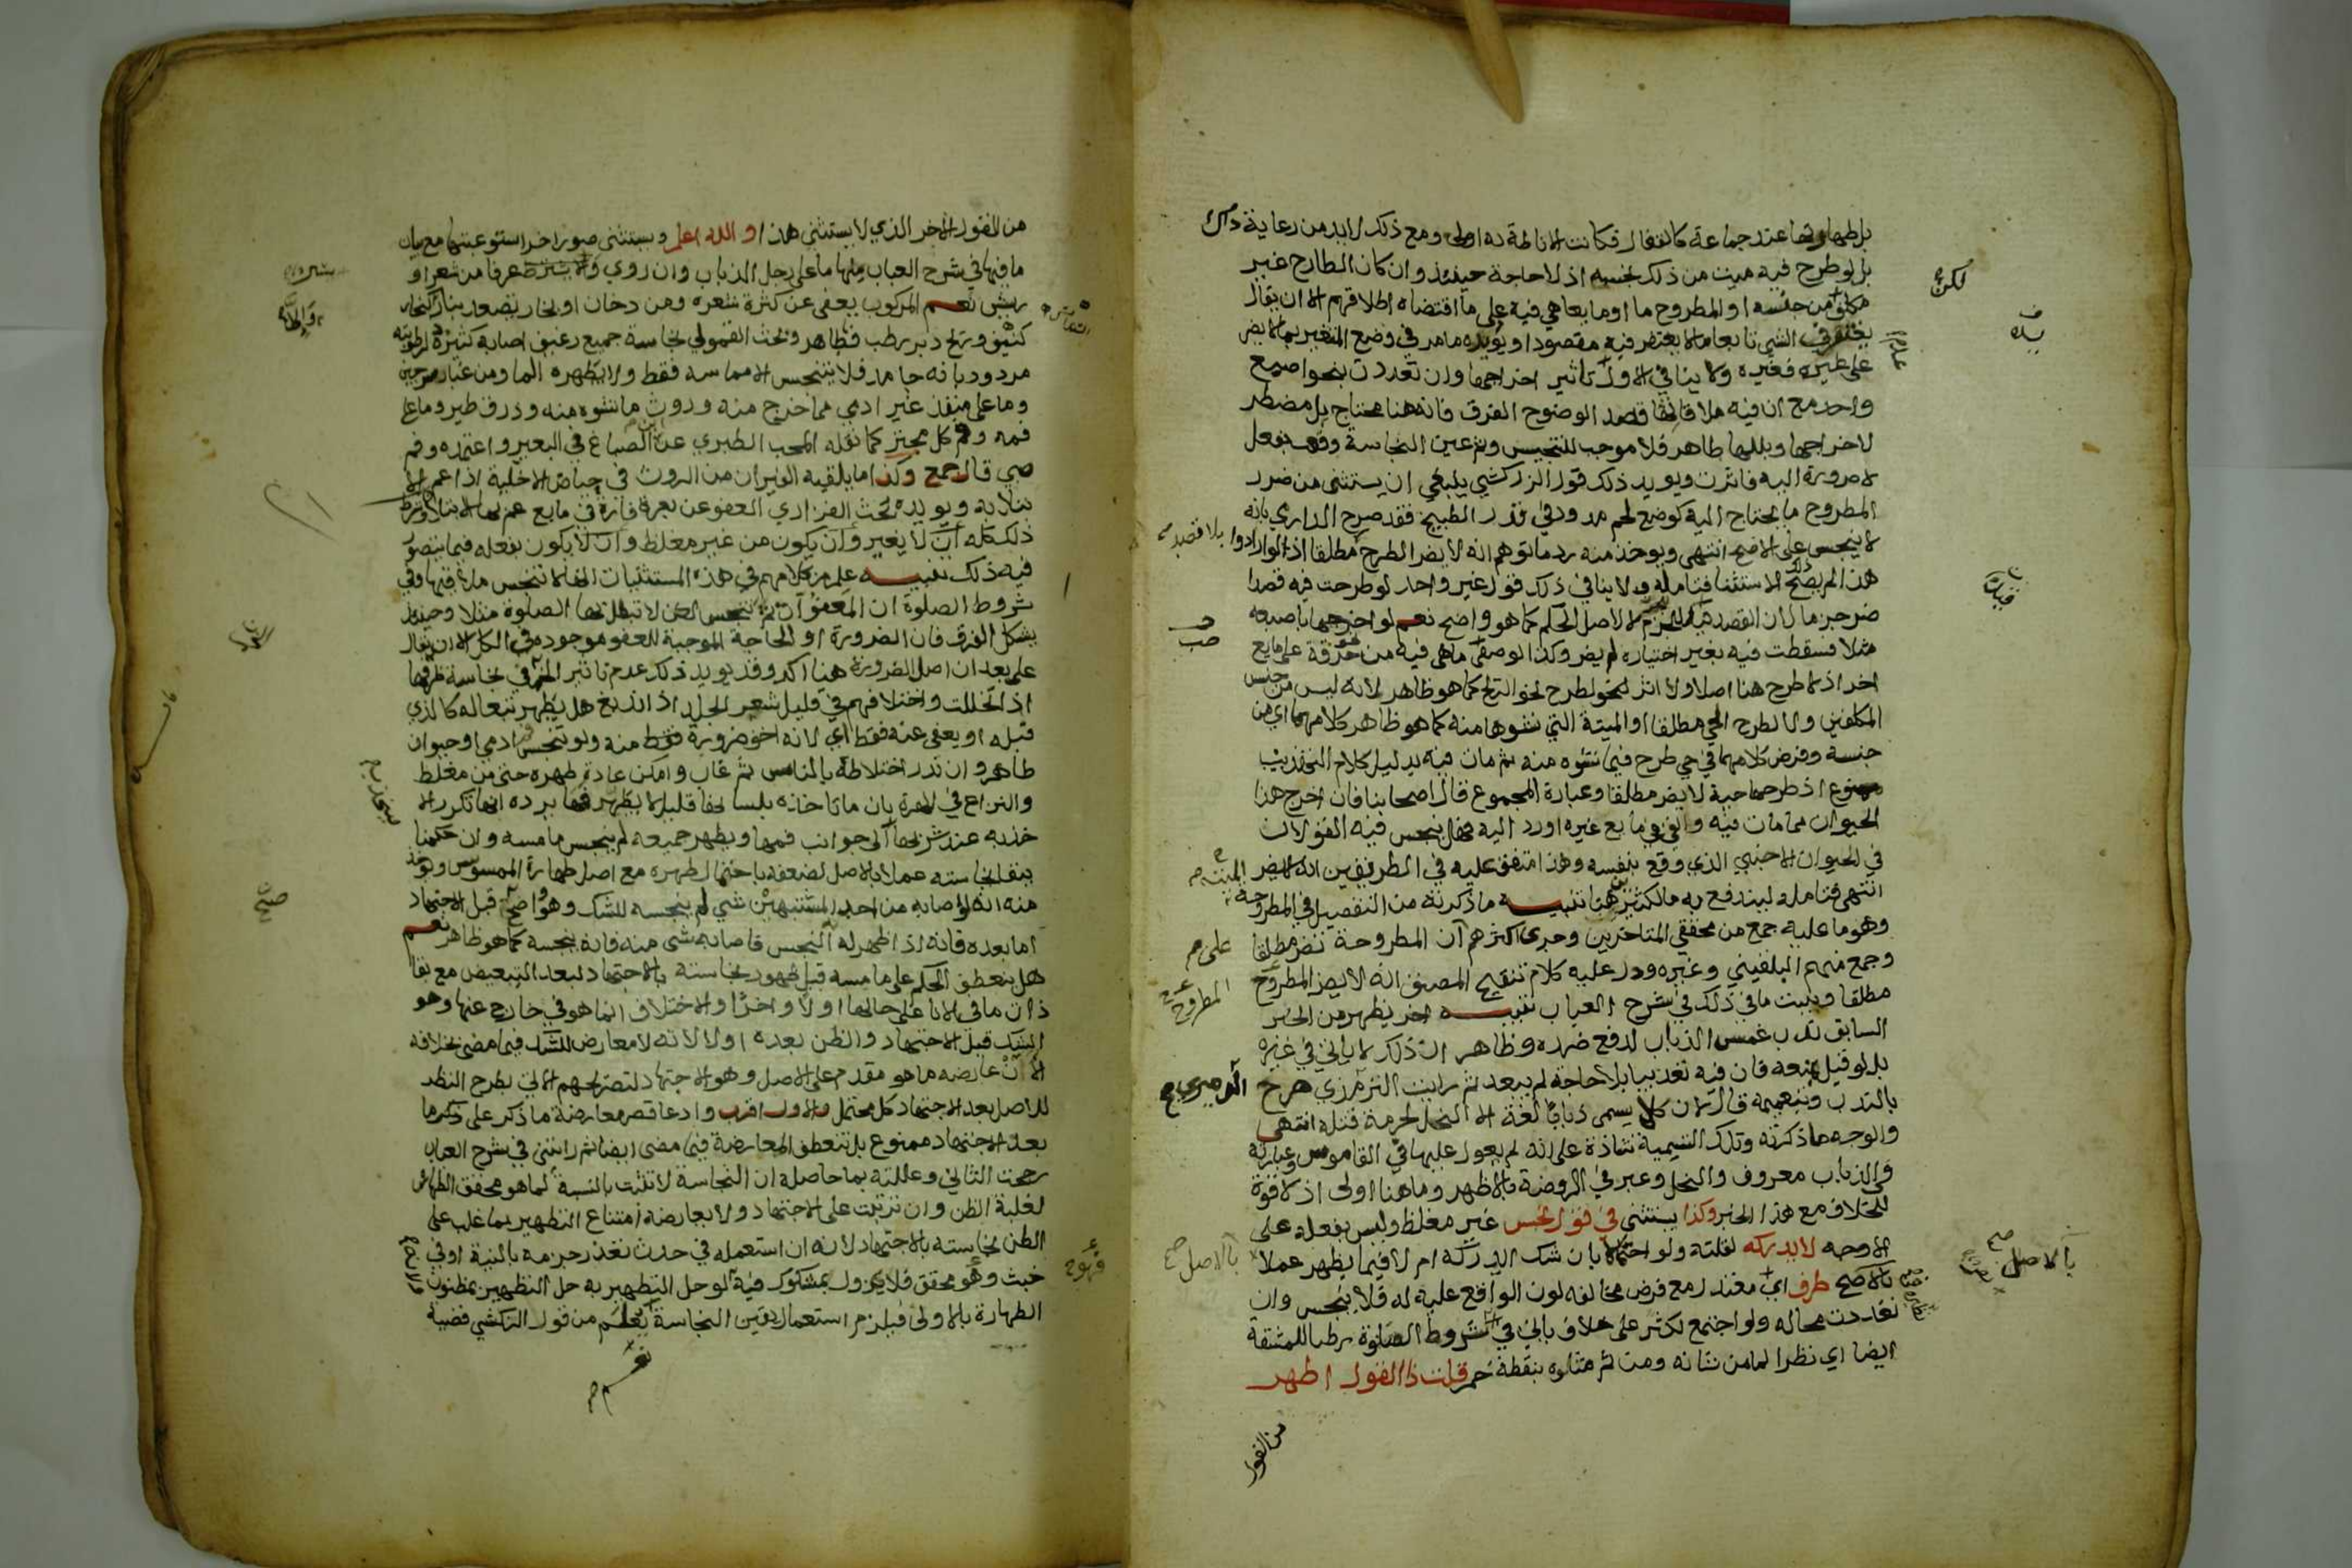 بل طهارتها عند جماعة كالقفال فكانت الاناطة به اولى ومع ذلك لابد من رعاية ذلك
بل لو طرح فيه ميت من ذلك نجسه اذ لا حاجة حينئذ وان كان الطارح غير
مكلف من جنسه او المطروح ماء او مايعا هي فيه على ما اقتضاه اطلاقهم الا ان يقال
يغتفر في الشي تابعا ما لا يغتفر فيه مقصودا ويؤيده ما مر في وضع المتغير بما لا يضر
على غيره فغيره ولا ينافي الاول تاثير اخراجها وان تعددت بنحو اصبع
واحد مع ان فيه ملاقاتها قصدا لوضوح الفرق فانه هنا محتاج بل مضطر
لاخراجها وبللها طاهر فلا موجب للتنجيس وثم عين النجاسة وقعت بفعل
لا ضرورة اليه فاثرت ويويد ذلك قول الزركشي ينبغي ان يستثنى من ضرر
المطروح ما يحتاج اليه كوضع لحم مدود في قدر الطبيخ فقد صرح الداري بانه
لا ينجس على الاصح انتهى ويوخذ منه رد ما توهم انه لا يضر الطرح مطلقا اذ لو ارادوا
هذا لم يصح ذلك الاستثنا فتامله ولا ينافي ذلك قول غير واحد لو طرحت فيه قصدا
ضر جزما لان القصد
مثلا فسقطت فيه بغير اختياره لم يضر وكذا لو صفى ما هي فيه من خرقة على مايع
اخر اذ لا طرح هنا اصلا ولا اثر لنحو لطرح نحو الريح كما هو ظاهر لانه ليس من جنس
المكلفين ولا لطرح الحي مطلقا او الميتة التي نشوها منه كما هو ظاهر كلامهما اي من
جنسه وفرض كلامهما في حي طرح فيما نشوه منه ثم مات فيه بدليل كلام التهذيب
ممنوع اذ طرحها حية لا يضر مطلقا وعبارة المجموع قال اصحابنا فان اخرج هذا
الحيوان مما مات فيه والقي في مايع غيره او رد اليه فهل ينجس فيه القولان
في الحيوان الاجنبي الذي وقع بنفسه وهذا متفق عليه في الطريقين انه لا يضر
انتهى فتامله ليندفع به ما لكثيرين هنا تنبيه ما ذكرته من التفصيل في المطروحة
وهو ما عليه جمع من محققي المتاخرين وجرى اكثرهم ان المطروحة تضر مطلقا
وجمع منهم البلقيني وغيره ودل عليه كلام تنقيح المصنف انه لا يضر المطروح
مطلقا وبينت ما في ذلك في شرح العباب تنبيه اخر يظهر من الخبر
السابق ندب غمس الذباب لدفع ضرره وظاهر ان ذلك لا ياتي في غيره
بل لو قيل بمنعه فان فيه تعذيبا بلا حاجة لم يبعد ثم رايت الدميري صرح
بالندب وبتعميمه قال لان الكل يسمى ذبابا لغة الا النحل لحرمة قتله انتهى
والوجه ما ذكرته وتلك التسمية شاذة على انه لم يعول عليها في القاموس وعبارته
والذباب معروف والنحل وعبر في الروضة بالاظهر وما هنا اولى اذ لا قوة
للخلاف مع هذا الخبر وكذا يستثنى في قول نجس غير مغلظ وليس بفعله على
الاوجه لا يدركه لقلته ولو احتمالا بان شك ايدركه ام لا فيما يظهر عملا
بالاصح طرف اي معتدل مع فرض مخالفة لون الواقع عليه له فلا ينجس وان
تعددت محاله ولو اجتمع لكثر على خلاف ياتي في شروط الصلوة ربطا للمشقة
ايضا اي نظرا لما من شانه ومن ثم مثلوه بنقطة خمر قلت ذا القول اظهر
من القول
من القول الاخر الذي لا يستثنى هذا والله اعلم ويستثنى صور اخر استوعبتها مع بيان
ما فيها في شرح العباب منها ما على رجل الذباب وان روي
ريش نعم المركوب يعفى عن كثرة شعره ومن دخان او بخار تصعد بنار
كثيف وريح دبر رطب فطاهر وبحث القمولي نجاسة جميع رغيف اصابه كثيره لرطوبته
مردود بانه جامد فلا يتنجس الا مماسه فقط ولا يطهره الماء ومن غبار سرجين
وما على منفذ غير ادمي مما خرج منه وروث ما نشوه منه وذرق طير وما على
فمه وفم كل مجتر كما نقله المحب الطبري عن ابن الصباغ في البعير واعتمده وفم
صبي قال جمع وكذا ما يلقيه الفيران من الروث في حياض الاخلية اذا عم الابتلا به
ويويده بحث الفزاري العفو عن بعرة فارة في مايع عم بها الابتلا وشرط
ذلك كله ان لا يغير وان يكون من غير مغلظ وان لا يكون بفعله فيما يتصور
فيه ذلك تنبيه علم من كلامهم في هذه المستثنيات انها لا تنجس ملاقيها وفي
شروط الصلوة ان المعفو ثم ينجس لكن لا تبطل بها الصلوة مثلا وحينئذ
يشكل الفرق فان الضرورة او الحاجة الموجبة للعفو موجودة في الكل الا ان يقال
على بعد ان اصل الضرورة هنا اكد وقد يويد ذلك عدم تاثير الخمر في نجاسة ظرفها
اذا تخللت واختلافهم في قليل شعر الجلد اذا اندبغ هل يطهر تبعا له كالذي
قبله او يعفى عنه فقط اي لانه اخف ضرورة فقط منه ولو تنجس ادمي او حيوان
طاهر وان ندر اختلاطه بالناس ثم غاب وامكن عادة طهره حتى من مغلظ
والنزاع في الهرة بان ما تاخذه بلسانها قليل لا يطهر فمها يرده انها تكرر الاخذ به
عند شربها الى جوانب فمها ويطهر جميعه لم ينجس ما مسه وان حكمنا
ببقا نجاسته عملا بالاصل لضعفه باحتمال طهره مع اصل طهارة الممسوس ويوخذ
منه انه لو اصابه من احد المشتبهين شي لم ينجسه للشك وهو واضح قبل الاجتهاد
اما بعده فانه اذا ظهر له النجس فاصابه شي منه فانه ينجسه كما هو ظاهر نعم
هل ينعطف الحكم على ما مسه قبل ظهور نجاسته بالاجتهاد لبعد التبعيض مع بقا
ذات ما في الانا على حالها اولا واخرا والاختلاف انما هو في خارج عنها وهو
الشك قبل الاجتهاد والظن بعده اولا لانه لا معارض للشك فيما مضى بخلافه
الان عارضه ما هو مقدم على الاصل وهو الاجتهاد لتصريحهم الاتي بطرح النظر
للاصل بعد الاجتهاد كل محتمل والاول اقرب وادعا قصر معارضة ما ذكر على
بعد الاجتهاد ممنوع بل تنعطف المعارضة فيما مضى ايضا ثم رايتني في شرح العباب
رجحت الثاني وعللته بما حاصله ان النجاسة لا تثبت بالنسبة لما هو محقق الطهارة
لغلبة الظن وان ترتبت على الاجتهاد ولا يعارضه امتناع التطهير بما غلب على
الظن نجاسته بالاجتهاد لانه ان استعمله في حدث تعذر جزمه بالنية او في
خبث وهو محقق فلا يزول بمشكوك فيه او لوحل التطهير به حل التطهير بمظنون
الطهارة بالاولى فيلزم استعمال يقين النجاسة يعلم من قول الزركشي قضية